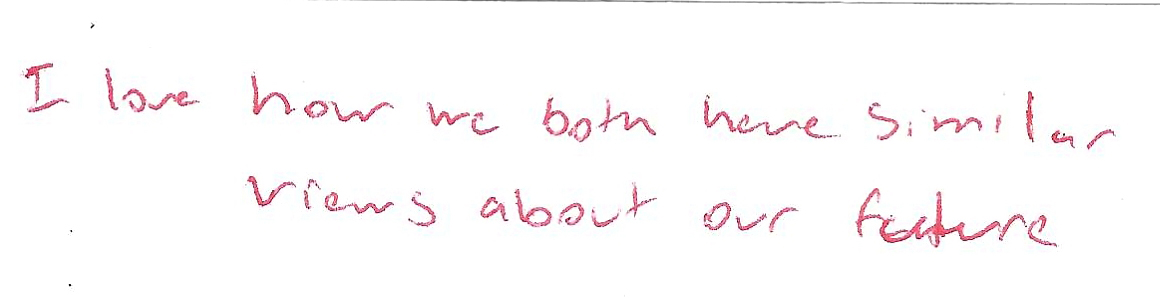 I love how we both have similar
views about our feature